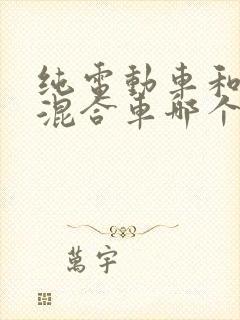 纯電動車和
混合車哪个
萬宇